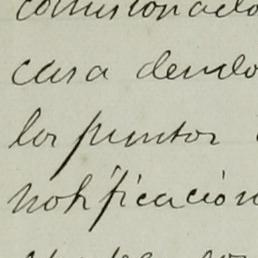 comisionado
casa dendo
los puntos
notificación